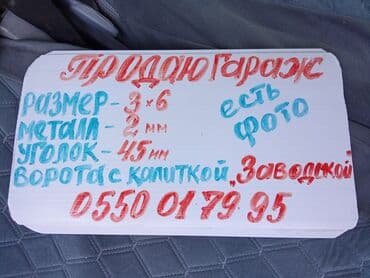 Продаю Гараж
Размер - 3 x 6
металл - 2 мм
уголок - 45 мм
есть фото
Ворота с калиткой „Заводской"
0550 01 79 95